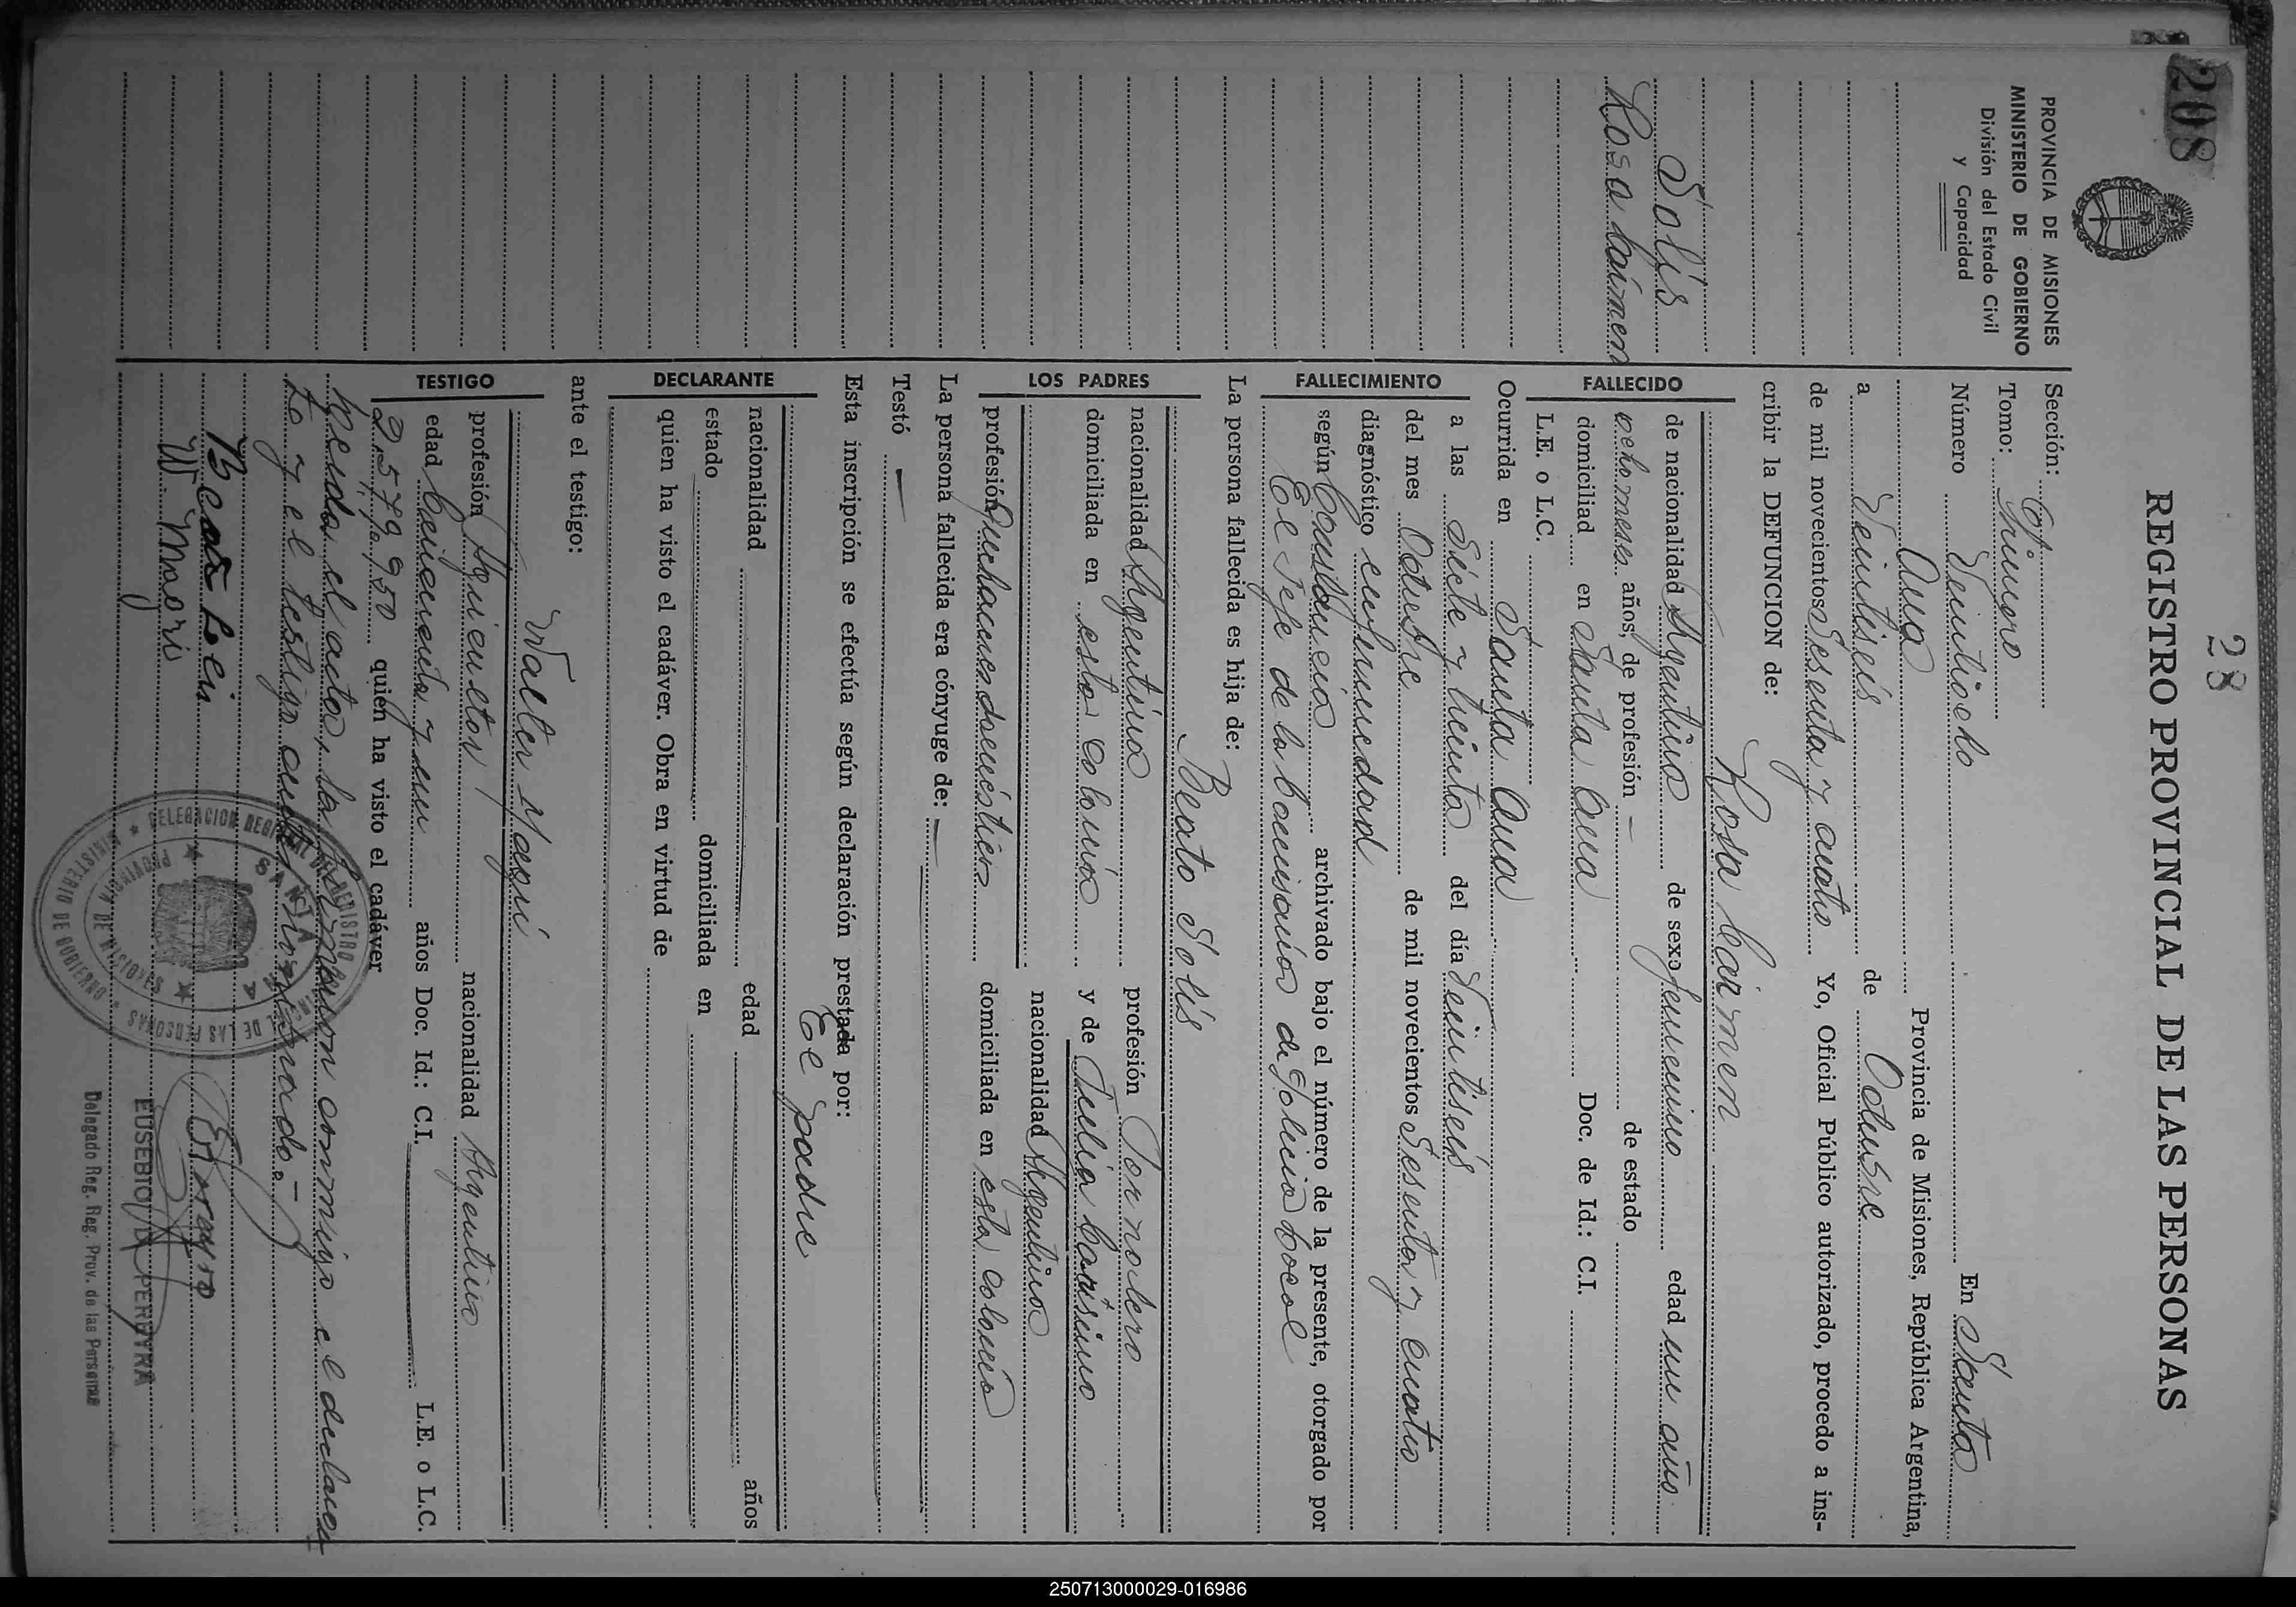 208
28
REGISTRO PROVINCIAL DE LAS PERSONAS
PROVINCIA DE MISIONES
MINISTERIO DE GOBIERNO
División del Estado Civil
y Capacidad
Solís
Rosa Cármen
Sección:
Tomo: Primero
Número Veintiocho En Santa
Ana Provincia de Misiones, República Argentina,
a Veintiseis de Octubre
de mil novecientos Sesenta y cuatro Yo, Oficial Público autorizado, procedo a ins-
cribir la DEFUNCION de:
Rosa Carmen
FALLECIDO
de nacionalidad Argentina de sexo femenino edad un año
ocho meses años, de profesión — de estado
domiciliad en Santa Ana Doc. de Id.: C.I.
L.E. o L.C.
Ocurrida en Santa Ana
FALLECIMIENTO
a las Siete y treinta del día Veintiseis
del mes Octubre de mil novecientos Sesenta y cuatro
diagnóstico enfermedad
según Constancia archivado bajo el número de la presente, otorgado por
El Jefe de la Comisaría de Policia Local
La persona fallecida es hija de:
Beato Solís
LOS PADRES
nacionalidad Argentina profesión Jornalero
domiciliada en esta colonia y de Julia
nacionalidad Argentina
profesión Quehaceres domésticos domiciliada en esta colonia
La persona fallecida era cónyuge de: —
Testó —
Esta inscripción se efectúa según declaración prestada por:
El padre
DECLARANTE
nacionalidad edad años
estado domiciliada en
quien ha visto el cadáver. Obra en virtud de
ante el testigo:
Walter Magri
TESTIGO
profesión Agricultor nacionalidad Argentina
edad Cincuenta y un años Doc. Id.: C.I. L.E. o L.C.
2.579.950 quien ha visto el cadáver
Leida el acta, la firmaron conmigo el declaran
te y el testigo
W. Magri
DELEGACION REGIONAL DEL REGISTRO PROVINCIAL DE LAS PERSONAS
SANTA ANA
PROVINCIA DE MISIONES
MINISTERIO DE GOBIERNO
EUSEBIO PEREYRA
Delegado Reg. Reg. Prov. de las Personas
250713000029-016986